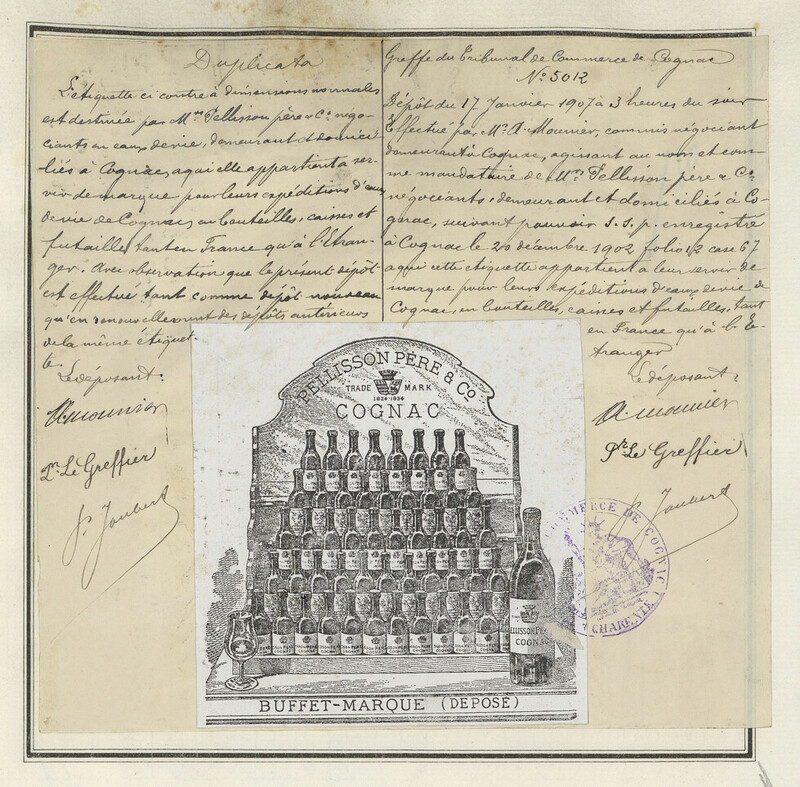 Duplicata
L'étiquette ci contre à dimensions normales
est destinée par Mrs Pellisson père & Cie négo-
ciants en eaux de vie, demeurant et domici-
liés à Cognac, à qui elle appartient à ser-
vir de marque pour leurs expéditions d'eaux
de vie de Cognac, en bouteilles, caisses et
futailles tant en France qu'à l'étran-
ger. Avec observation que le présent dépôt
est effectué tant comme dépôt nouveau
qu'en renouvellement des dépôts antérieurs
de la même étiquet-
te.
Le déposant:
A. Mounier
Pr. Le Greffier
J. Joubert
Greffe du Tribunal de Commerce de Cognac
No 5012
Dépôt du 17 Janvier 1907 à 3 heures du soir
Effectué par Mr A. Mounier, commis négociant
demeurant à Cognac, agissant au nom et com-
me mandataire de Mrs Pellisson père & Cie
négociants, demeurant et domiciliés à Co-
gnac, suivant pouvoir s.s.p. enregistré
à Cognac le 20 décembre 1902 folio 12 case 67
à qui cette étiquette appartient à leur servir de
marque pour leurs expéditions d'eaux de vie de
Cognac, en bouteilles, caisses et futailles, tant
en France qu'à l'É-
tranger
Le déposant:
A. Mounier
Pr. Le Greffier
J. Joubert
PELLISSON PÈRE & Co
TRADE MARK
1824-1834
COGNAC
PELLISSON PÈRE
COGNAC
BUFFET-MARQUE (DÉPOSÉ)
COMMERCE DE COGNAC
(CHARENTE)